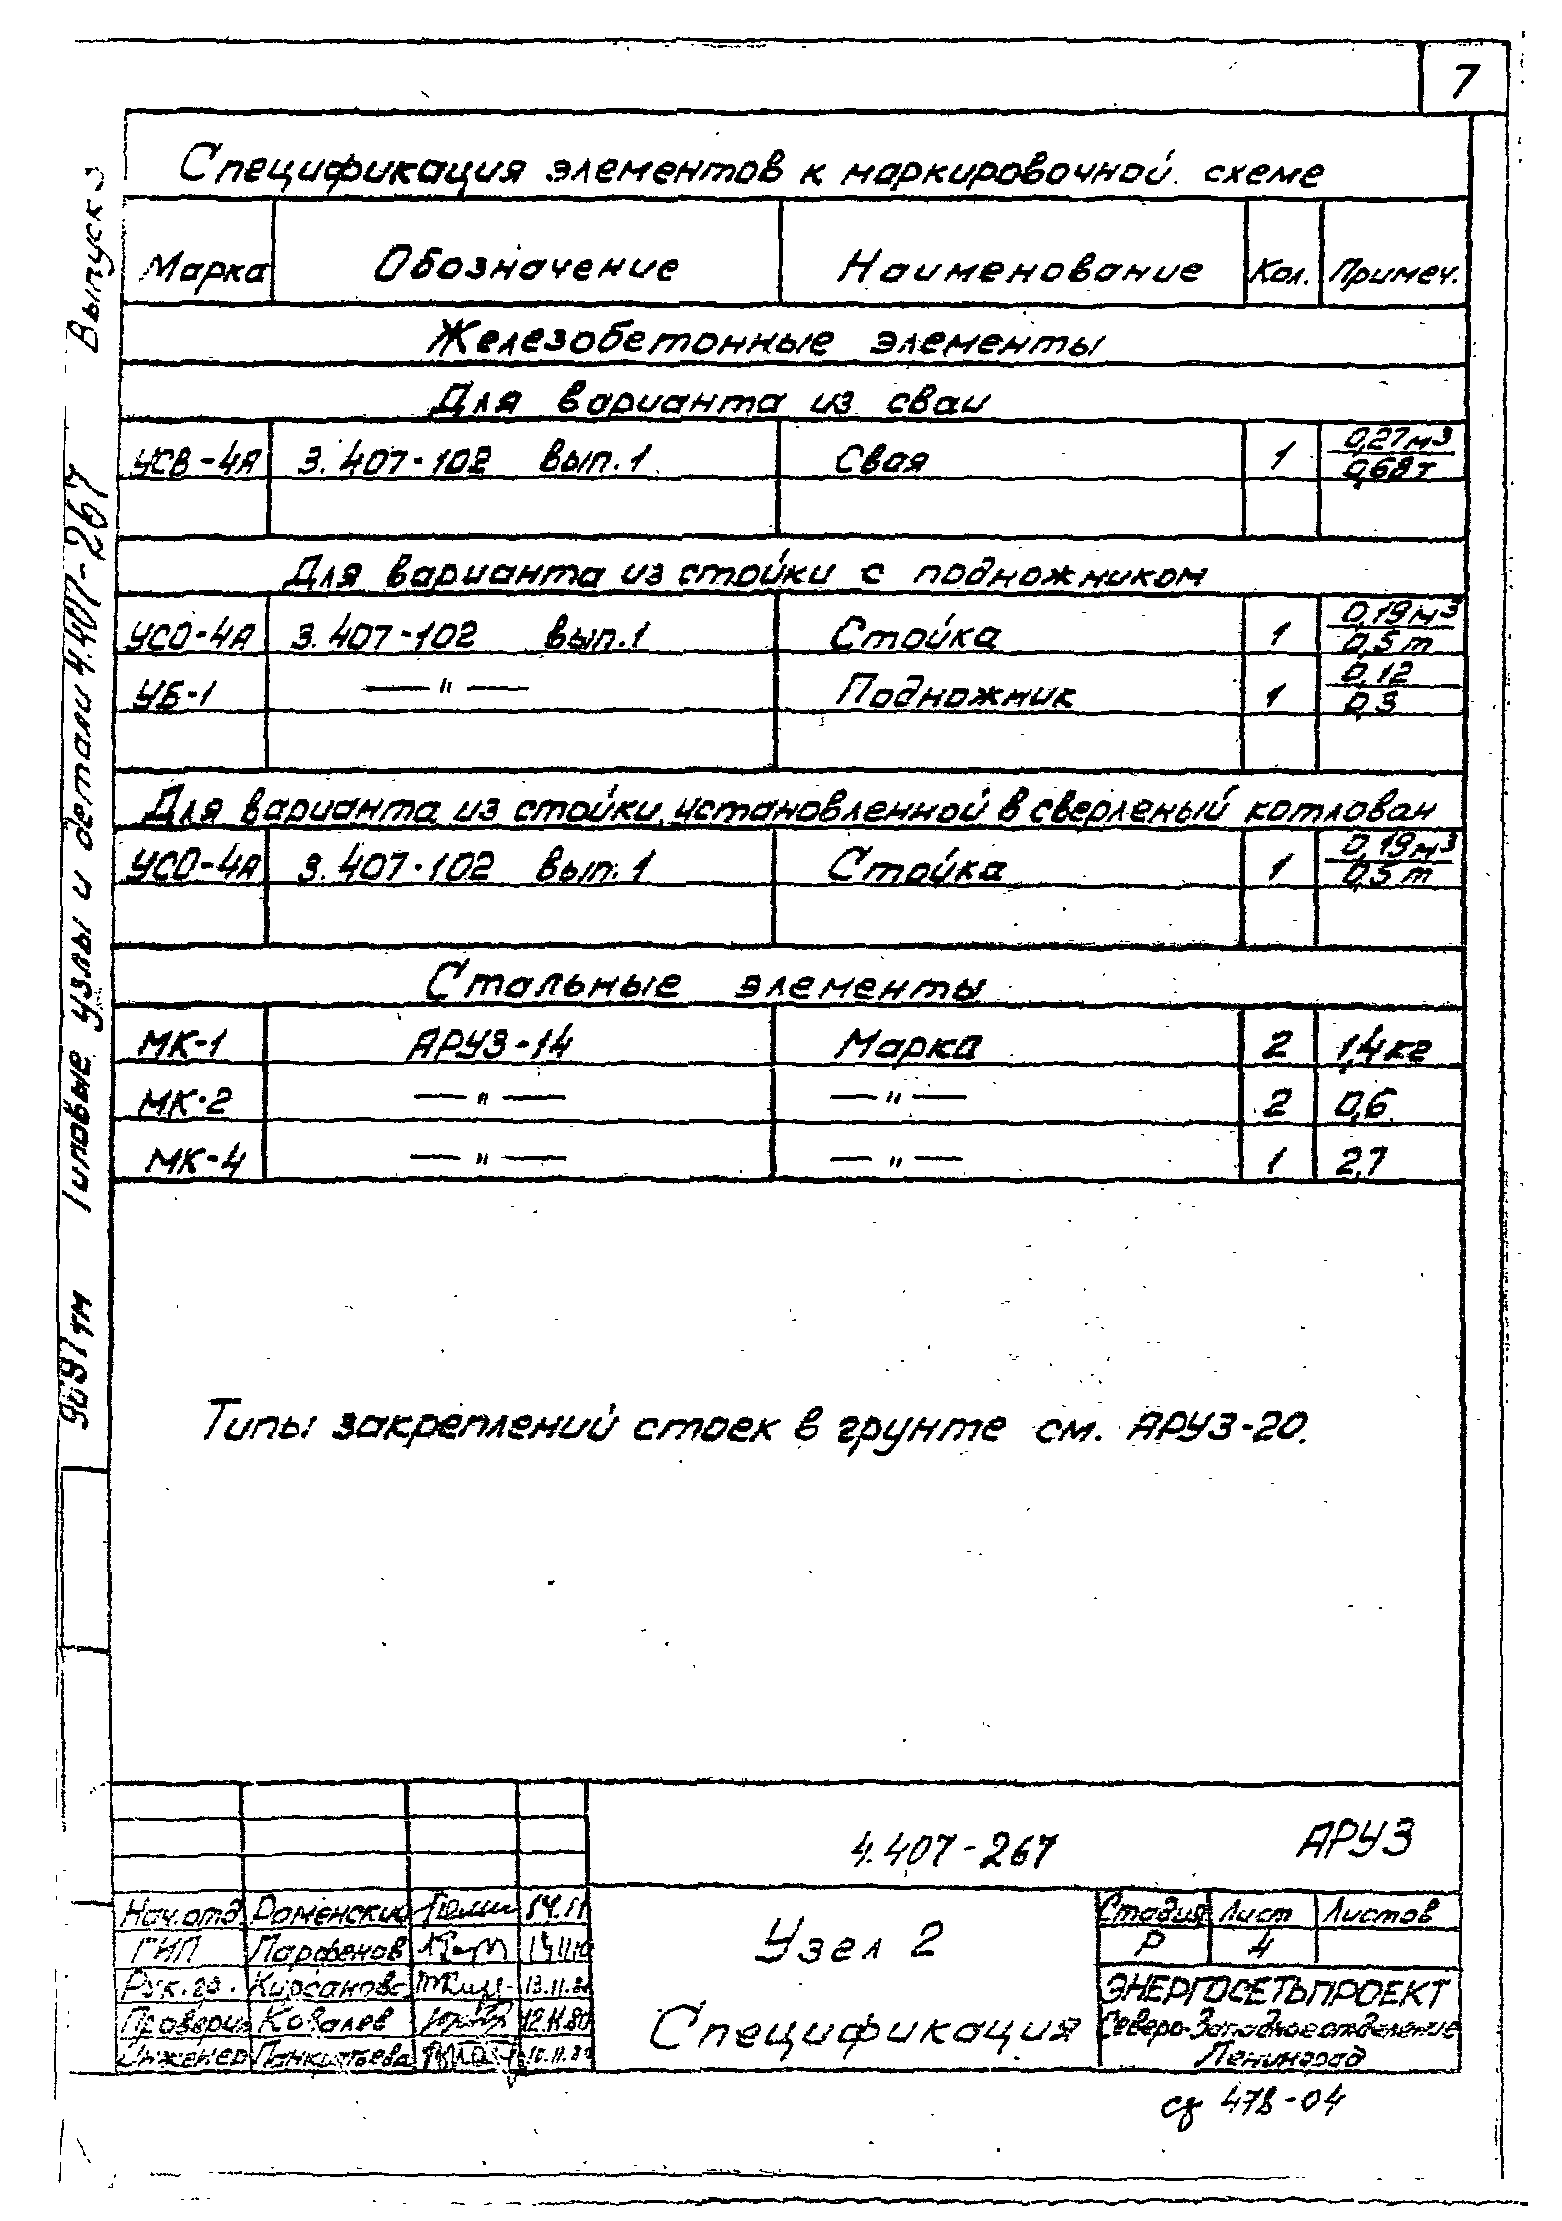 7
Спецификация элементов к маркировочной схеме
Марка Обозначение Наименование Кол. Примеч.
Железобетонные элементы
Для варианта из сваи
УСВ-4А 3.407-102 вып.1 Свая 1 0,27м³ / 0,68т
Для варианта из стойки с подножником
УСО-4А 3.407-102 вып.1 Стойка 1 0,19м³ / 0,5т
УБ-1 —"— Подножник 1 0,12 / 0,3
Для варианта из стойки, установленной в сверленый котлован
УСО-4А 3.407-102 вып.1 Стойка 1 0,19м³ / 0,5т
Стальные элементы
МК-1 АРУЗ-14 Марка 2 1,4кг
МК-2 —"— —"— 2 0,6
МК-4 —"— —"— 1 2,7
Типы закреплений стоек в грунте см. АРУЗ-20.
Типовые узлы и детали 4.407-267 Выпуск
4.407-267 АРУЗ
Нач.отд Роменский 14.11
ГИП Парфенов
Рук.гр. Кирсанова 13.11.80
Проверил Ковалев 12.11.80
Инженер
Узел 2
Спецификация
Стадия Лист Листов
Р 4
ЭНЕРГОСЕТЬПРОЕКТ
Северо-Западное отделение
Ленинград
478-04